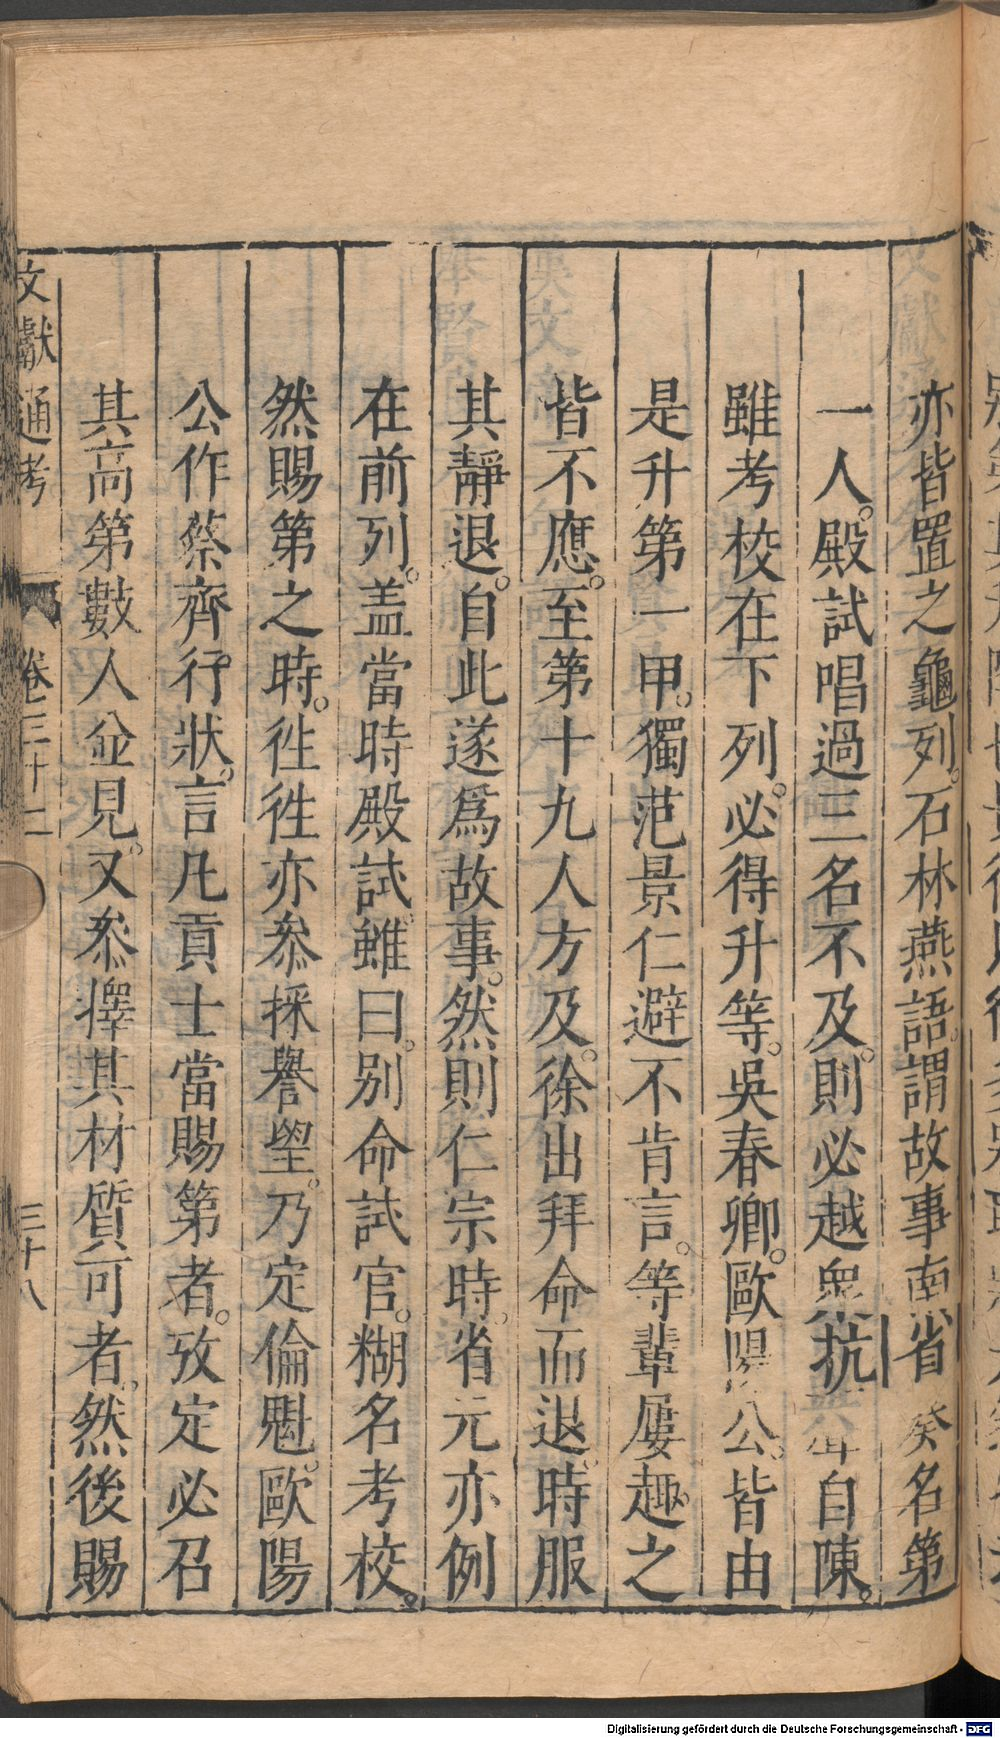 亦皆置之龜列。石林燕語。謂故事南省癸名第
一人。殿試唱過三名不及。則必越衆抗聲自陳。
雖考校在下列。必得升等。吳春卿。歐陽公。皆由
是升第一甲。獨范景仁避不肯言。等輩屢趣。之
皆不應。至第十九人方及。徐出拜命而退。時服
其靜退。自此遂爲故事。然則仁宗時。省元亦例
在前列。盖當時殿試。雖曰。别命試官。糊名考校。
然賜第之時。徃徃亦叅採譽望。乃定倫魁。歐陽
公作蔡齊。行狀。言凡貢士當賜第者。攷定必召
其高第數人並見。又叅擇其材質可者。然後賜
文獻通考 卷三十二 三十八
Digitalisierung gefördert durch die Deutsche Forschungsgemeinschaft - DFG